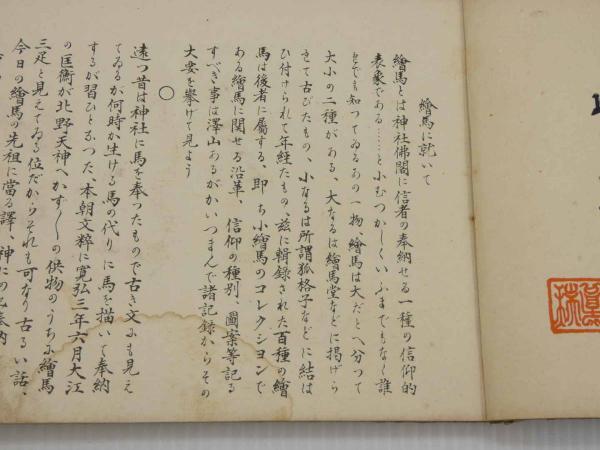 繪馬に就いて
繪馬とは神社佛閣に信者の奉納せる一種の信仰的
表象である……と小むつかしくいふまでもなく誰
でも知つてゐるあの一物、繪馬は大だとへ分つて
大小の二種がある、大なるは繪馬堂などに掲げら
れて古びたもの、小なるは所謂狐格子などに結は
ひ付けられて年経たもの、茲に輯錄された百種の繪
馬は後者に屬する、即ち小繪馬のコレクシヨンで
ある繪馬に関せる沿革、信仰の種別、圖案等記る
すべき事は澤山あるがかいつまんで諸記錄からその
大要を擧げて見よう
○
遠つ昔は神社に馬を奉つたもので古き文にも見え
てゐるが何時か生ける馬の代りに馬を描いて奉納
するが習ひとなつた、本朝文粹に寛弘三年六月大江
の匡衡が北野天神へかず〱の供物のうちに繪馬
三疋と見えてゐる位だからそれも可なり古るい話、
今日の繪馬の先祖に當る譯、神にのみ奉納